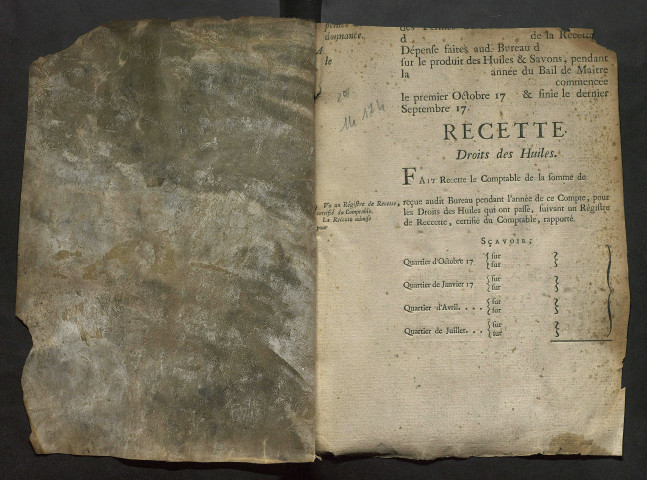 donnance.
de la Recette
A
le
Dépense faites aud. Bureau d
sur le produit des Huiles & Savons, pendant
la année du Bail de Maitre
commencée
le premier Octobre 17 & finie le dernier
Septembre 17.
RECETTE.
Droits des Huiles.
FAIT Recette le Comptable de la somme de
Vu un Régistre de Recette,
certifié du Comptable.
La Recette admise
pour
reçue audit Bureau pendant l'année de ce Compte, pour
les Droits des Huiles qui ont passé, suivant un Régistre
de Reccette, certifié du Comptable, rapporté.
SÇAVOIR;
Quartier d'Octobre 17 { sur
{ sur
Quartier de Janvier 17 { sur
{ sur
Quartier d'Avril. . . . { sur
{ sur
Quartier de Juillet. . . { sur
{ sur